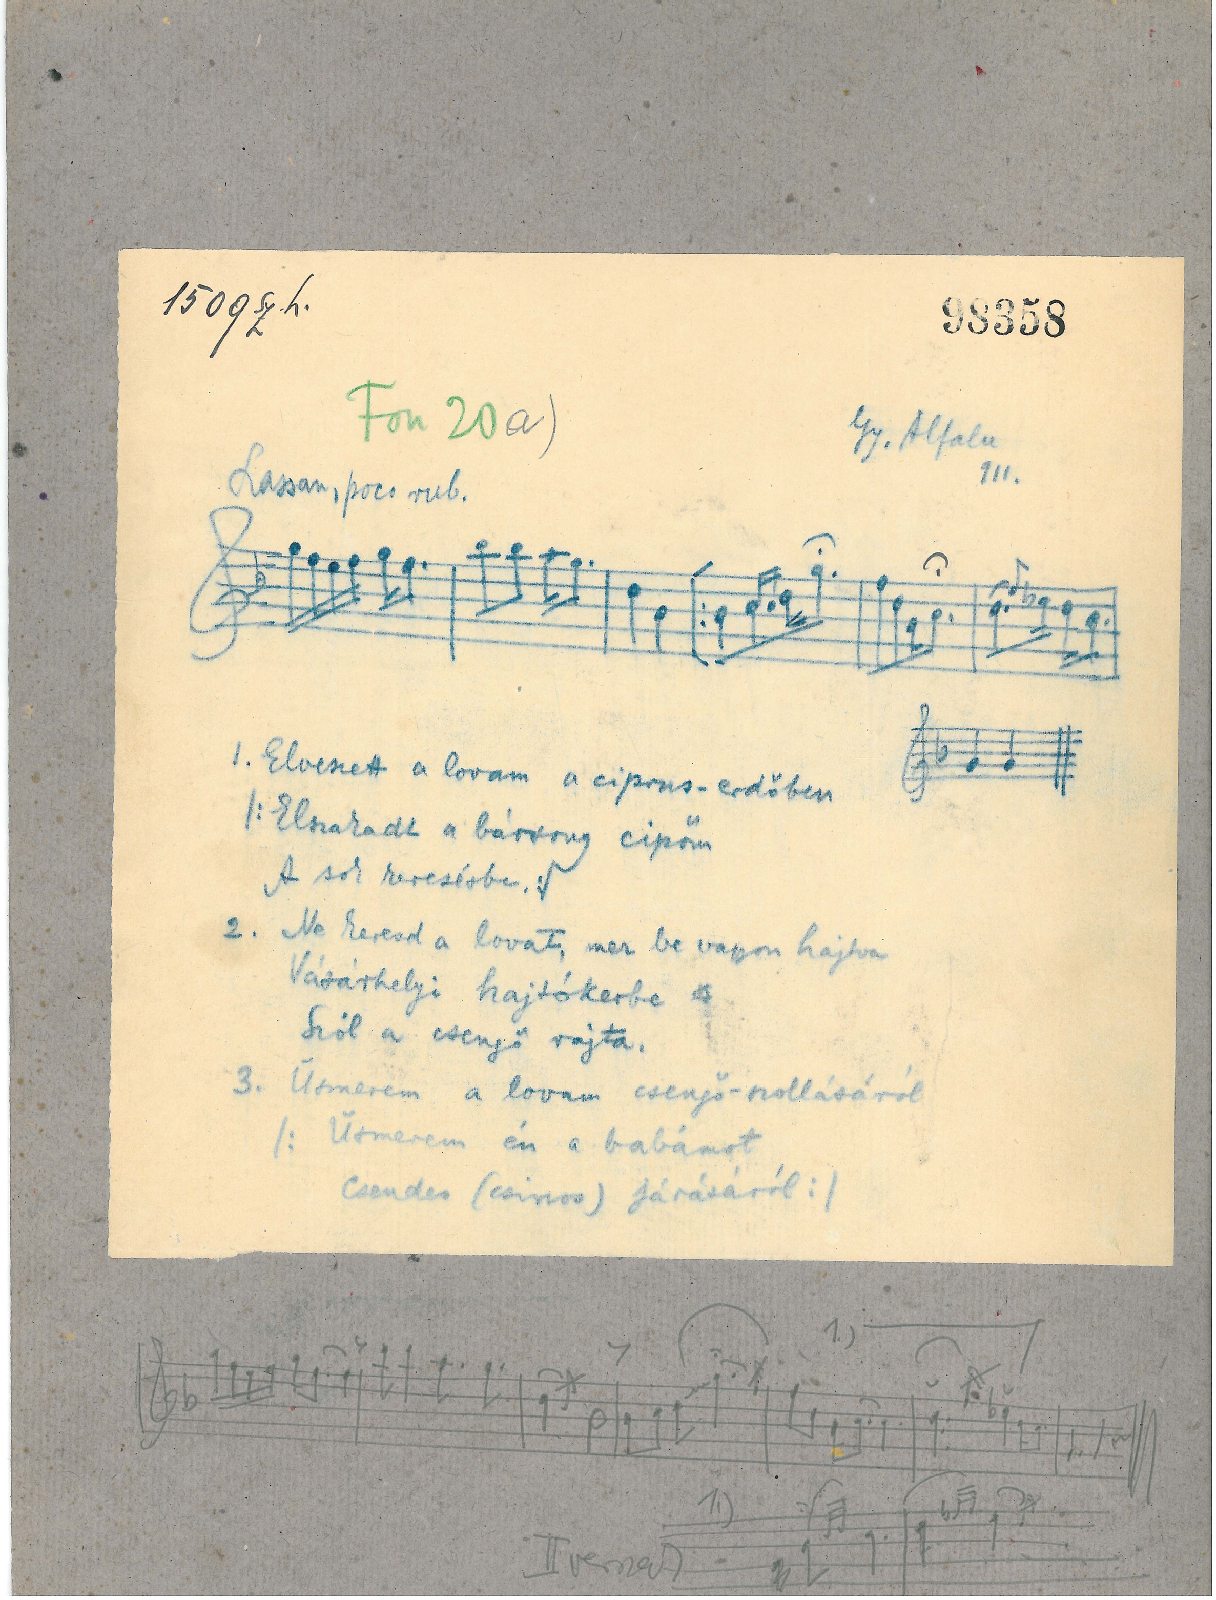 1509 sz. h.
98358
Fon 20a)
Gy. Alfalu
911.
Lassan, poco rub.
1. Elveszett a lovam a ciprus-erdőben
/: Elszakadt a bársony cipőm
A sok keresésbe. :/
2. Ne keresd a lovat, mer be vagyon hajtva
Vásárhelyi hajtókerbe
Szól a csengő rajta.
3. Üsmerem a lovam csengő-szollásáról
/: Üsmerem én a babámot
Csendes (csinos) járásáról :/
1.)
1.)
II versza